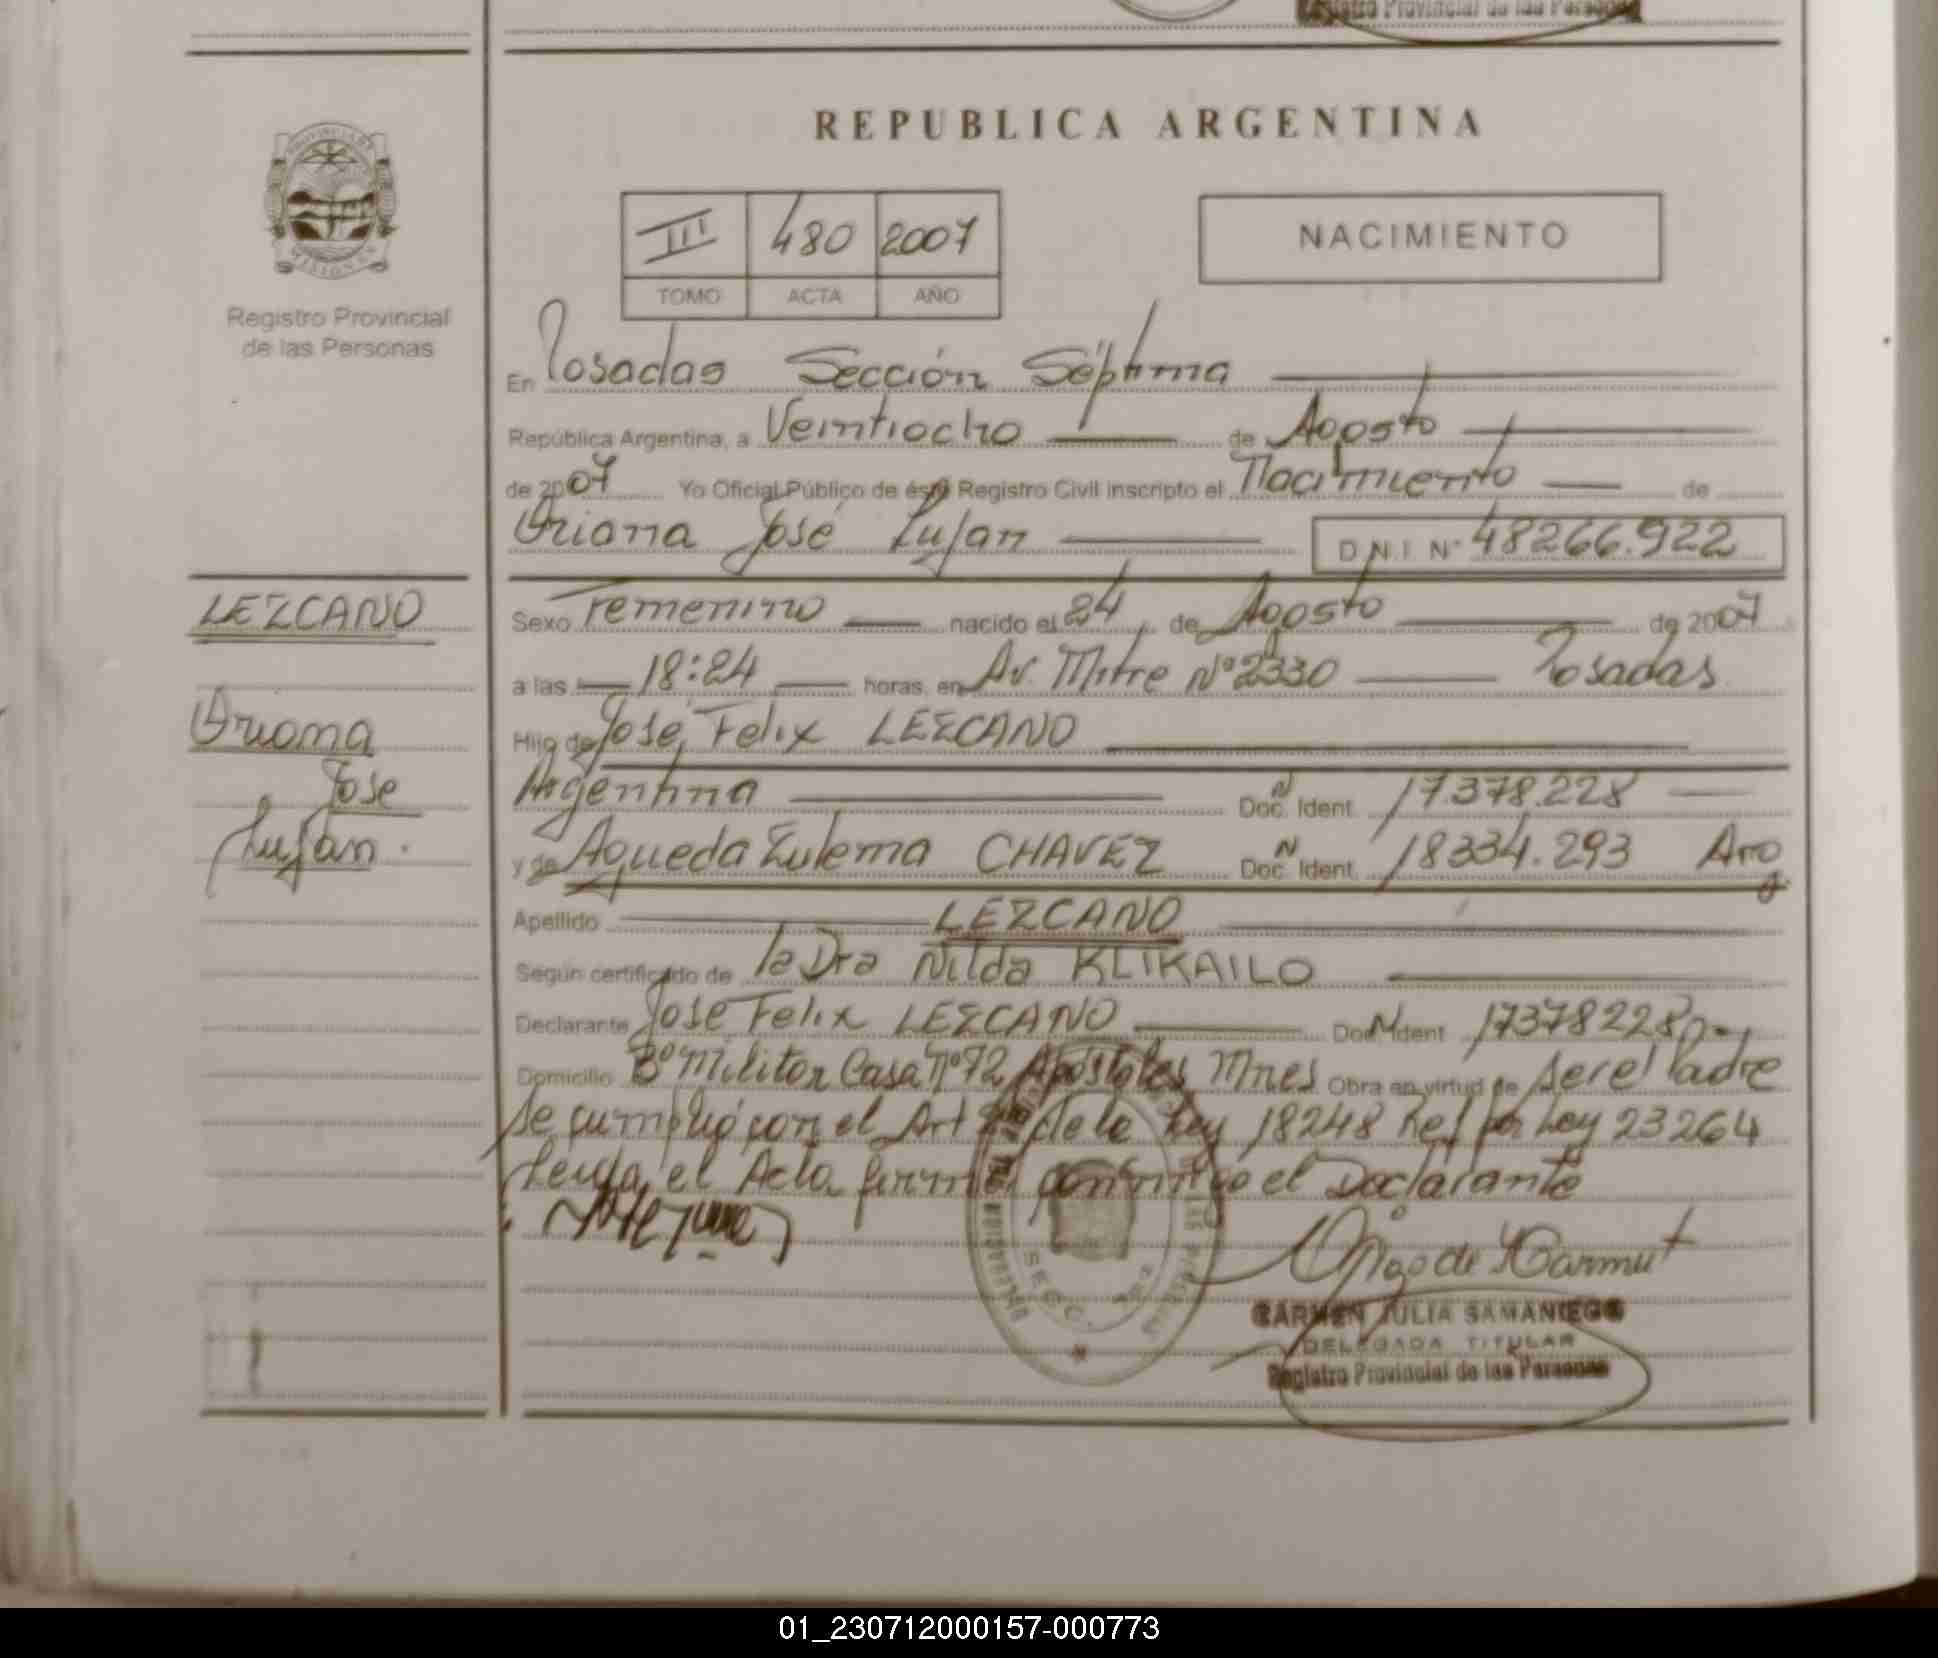 Registro Provincial de las Personas
PROVINCIA DE
MISIONES
Registro Provincial
de las Personas
REPUBLICA ARGENTINA
III 480 2007
TOMO ACTA AÑO
NACIMIENTO
En Posadas Sección Séptima
República Argentina, a Veintiocho de Agosto
de 2007 Yo Oficial Público de éste Registro Civil inscripto el Nacimiento de
Oriana José Luján D.N.I. Nº 48266.922
LEZCANO
Oriana
José
Luján.
Sexo Femenino nacido el 24 de Agosto de 2007
a las 18:24 horas, en Av. Mitre Nº 2330 Posadas
Hijo de José Felix LEZCANO
Argentina Doc. N Ident. 17.378.228
y de Agueda Zulema CHAVEZ Doc. N Ident. 18334.293 Arg
Apellido LEZCANO
Según certificado de la Dra Nilda KLIKAILO
Declarante José Felix LEZCANO Doc N Ident 17378228
Domicilio Bº Militar Casa Nº 72 Apóstoles Mnes Obra en virtud de ser el Padre
Se cumplió con el Art de la Ley 18248 Ref por Ley 23264
Leída el Acta firma conmigo el Declarante
SECC.
CARMEN JULIA SAMANIEGO
DELEGADA TITULAR
Registro Provincial de las Personas
01_230712000157-000773